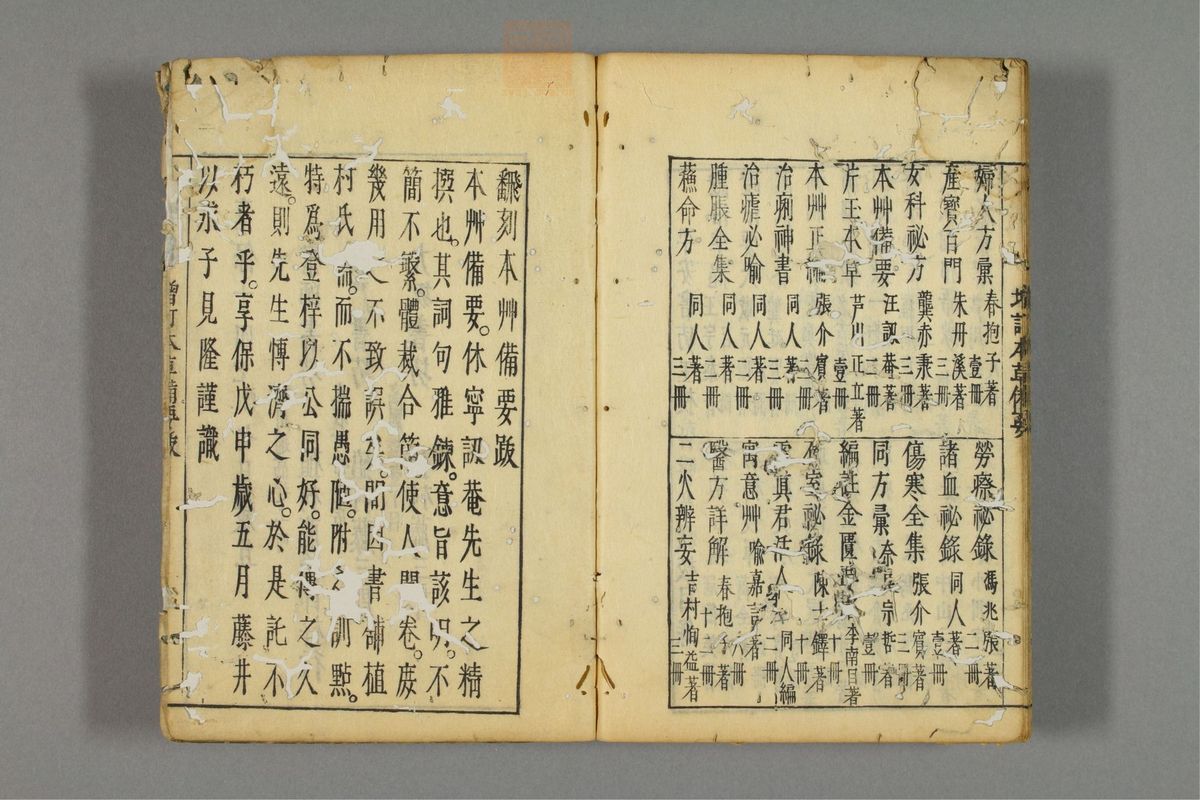 婦人方彙 春抱子著 壹冊
產寶百門 朱丹溪著 三冊
女科祕方 龔赤秉著 三冊
本艸備要 汪訒菴著 二冊
芹王本草 芦川正立著 壹冊
本艸正 張介賓著 二冊
治痢神書 同人著 二冊
治瘧必喻 同人著 二冊
腫脹全集 同人著 二冊
蘓命方 同人著 三冊
勞瘵祕錄 馮兆張著 二冊
諸血祕錄 同人著 壹冊
傷寒全集 張介賓著 三冊
同方彙 奈良宗哲著 壹冊
編註金匱 李南目著 十冊
石室祕錄 陳士鐸著 十冊
雷真君活人 同人編 二冊
寓意艸 喻嘉言著 八冊
醫方詳解 春抱子著 十二冊
二火辨妄 吉村恂益著 三冊
增訂本草備要
飜刻本艸備要跋
本艸備要。休寧訒菴先生之精
撰也。其詞句雅鍊。意旨該明。不
簡不繁。體裁合節。使人開卷。庻
幾用之不致誤矣。間因書舖植
村氏 而不揣愚陋。附以訓點。
特爲登梓以公同好。能傳之久
遠。則先生博濟之心。於是託不
朽者乎。享保戊申歲五月藤井
以求子見隆謹識
增訂本草備要跋